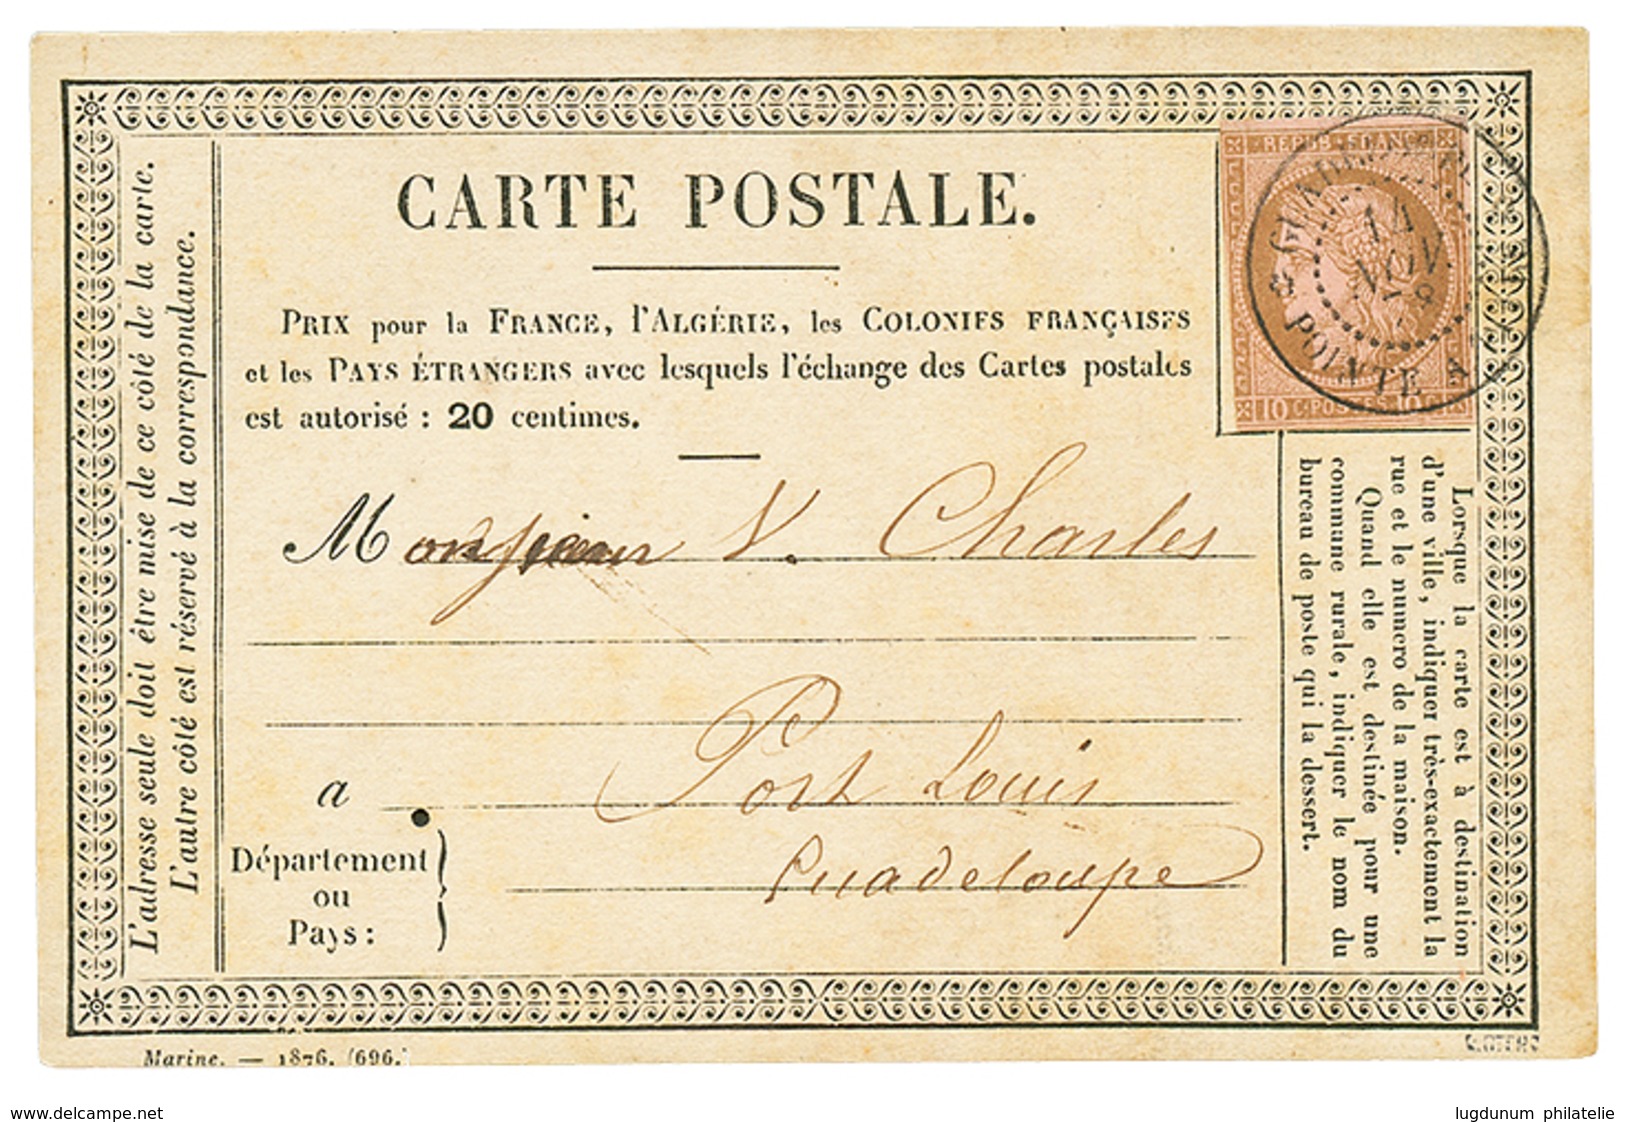 CARTE POSTALE.
REPUB. FRANC.
10 C. POSTES 10 C.
14
NOV.
POINTE A
PRIX pour la FRANCE, l'ALGÉRIE, les COLONIES FRANÇAISES
et les PAYS ÉTRANGERS avec lesquels l'échange des Cartes postales
est autorisé : 20 centimes.
L'adresse seule doit être mise de ce côté de la carte.
L'autre côté est réservé à la correspondance.
Monsieur V. Charles
a Port Louis
Département
ou
Pays :
Guadeloupe
Lorsque la carte est à destination
d'une ville, indiquer très-exactement la
rue et le numéro de la maison.
Quand elle est destinée pour une
commune rurale, indiquer le nom du
bureau de poste qui la dessert.
Marine. — 1876. (696.)
www.delcampe.net
lugdunum philatelie